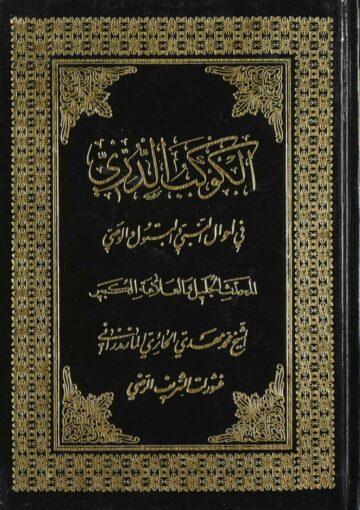 الكوكب الدري
في احوال النبي و البتول و الوصي
المحدث الجليل والعلامة الكبير
الشيخ محمد مهدي الحائري المازندراني
منشورات الشريف الرضي